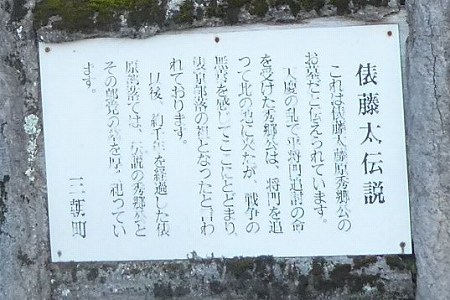 俵藤太伝説
これは俵藤太藤原秀郷公の
お墓だと伝えられています。
天慶の乱で平将門追討の命
を受けた秀郷公は、将門を追
つて北の地に来たが、戦争の
無常を感じてここにとどまり、
俵原部落の祖となったと言わ
れております。
以後、約千年を経過した俵
原部落では、伝説の秀郷公と
その郎党の墓を厚く祀ってい
ます。
三朝町